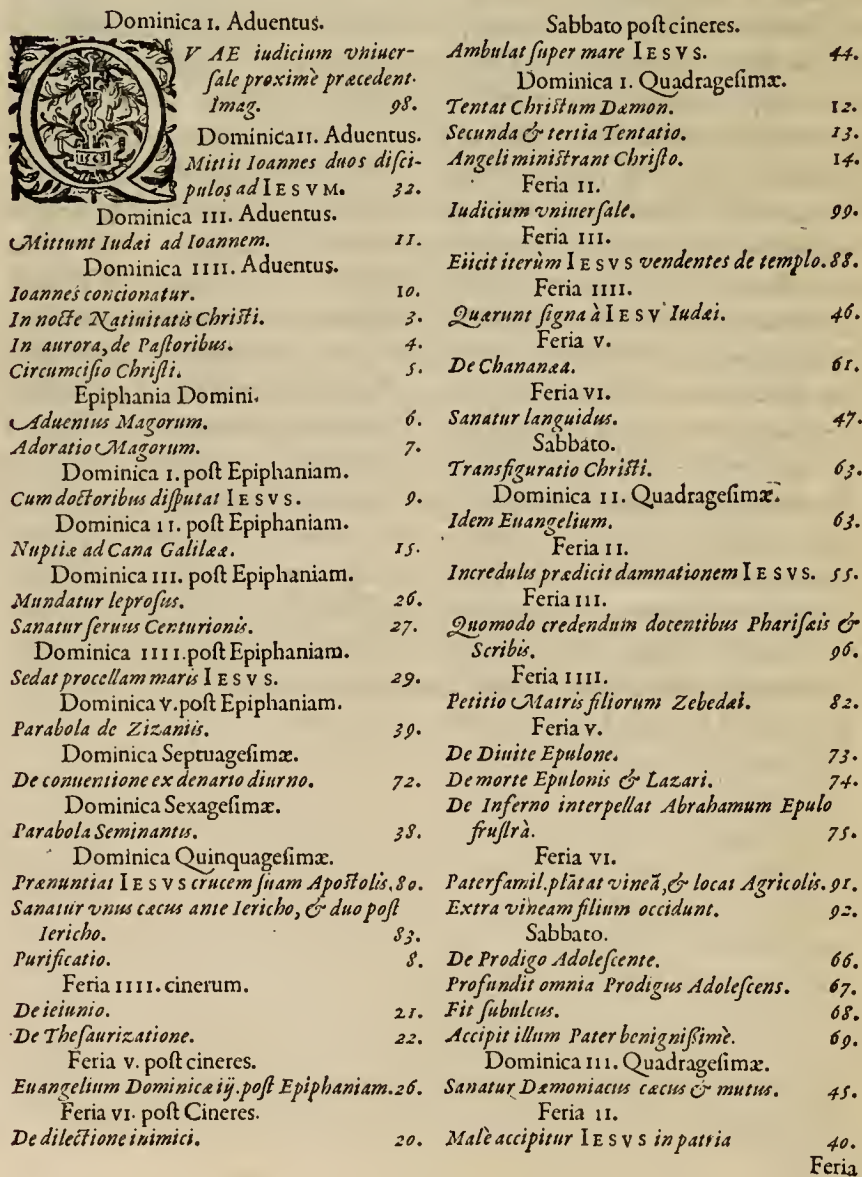 Dominica I. Aduentus.
QV AE iudicium vniuer-
ſale proximè præcedent.
Imag. 98.
Dominica II. Aduentus.
Mittit Ioannes duos diſci-
pulos ad IESVM. 32.
Dominica III. Aduentus.
Mittunt Iudæi ad Ioannem. 11.
Dominica IIII. Aduentus.
Ioannes concionatur. 10.
In nocte Natiuitatis Chriſti. 3.
In aurora, de Paſtoribus. 4.
Circumciſio Chriſti. 5.
Epiphania Domini.
Aduentus Magorum. 6.
Adoratio Magorum. 7.
Dominica I. poſt Epiphaniam.
Cum doctoribus diſputat IESVS. 9.
Dominica II. poſt Epiphaniam.
Nuptiæ ad Cana Galilææ. 15.
Dominica III. poſt Epiphaniam.
Mundatur leproſus. 26.
Sanatur ſeruus Centurionis. 27.
Dominica IIII. poſt Epiphaniam.
Sedat procellam maris IESVS. 29.
Dominica V. poſt Epiphaniam.
Parabola de Zizaniis. 39.
Dominica Septuageſimæ.
De conuentione ex denario diurno. 72.
Dominica Sexageſimæ.
Parabola Seminantis. 38.
Dominica Quinquageſimæ.
Prænuntiat IESVS crucem ſuam Apoſtolis. 80.
Sanatur vnus cæcus ante Iericho, & duo poſt
Iericho. 83.
Purificatio. 8.
Feria IIII. cinerum.
De ieiunio. 21.
De Theſaurizatione. 22.
Feria V. poſt cineres.
Euangelium Dominicæ iij. poſt Epiphaniam. 26.
Feria VI. poſt Cineres.
De dilectione inimici. 20.
Sabbato poſt cineres.
Ambulat ſuper mare IESVS. 44.
Dominica I. Quadrageſimæ.
Tentat Chriſtum Dæmon. 12.
Secunda & tertia Tentatio. 13.
Angeli miniſtrant Chriſto. 14.
Feria II.
Iudicium vniuerſale. 99.
Feria III.
Eiicit iterùm IESVS vendentes de templo. 88.
Feria IIII.
Quærunt ſigna à IESV Iudæi. 46.
Feria V.
De Chananæa. 61.
Feria VI.
Sanatur languidus. 47.
Sabbato.
Transfiguratio Chriſti. 63.
Dominica II. Quadrageſimæ.
Idem Euangelium. 63.
Feria II.
Incredulis prædicit damnationem IESVS. 55.
Feria III.
Quomodo credendum docentibus Phariſæis &
Scribis. 96.
Feria IIII.
Petitio Matris filiorum Zebedæi. 82.
Feria V.
De Diuite Epulone. 73.
De morte Epulonis & Lazari. 74.
De Inferno interpellat Abrahamum Epulo
fruſtrà. 75.
Feria VI.
Paterfamil. plātat vineā, & locat Agricolis. 91.
Extra vineam filium occidunt. 92.
Sabbato.
De Prodigo Adoleſcente. 66.
Profundit omnia Prodigus Adoleſcens. 67.
Fit ſubulcus. 68.
Accipit illum Pater benigniſſimè. 69.
Dominica III. Quadrageſimæ.
Sanatur Dæmoniacus cæcus & mutus. 45.
Feria II.
Malè accipitur IESVS in patria 40.
Feria